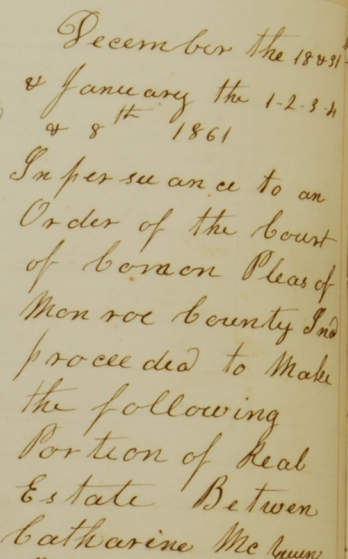 December the 18 & 31
& January the 1-2-3-4
& 8th 1861
In per su an ce to an
Order of the Court
of Comon Pleas of
Monroe County Ind
proceeded to Make
the following
Portion of Real
Estate Betwen
Catharine Mc